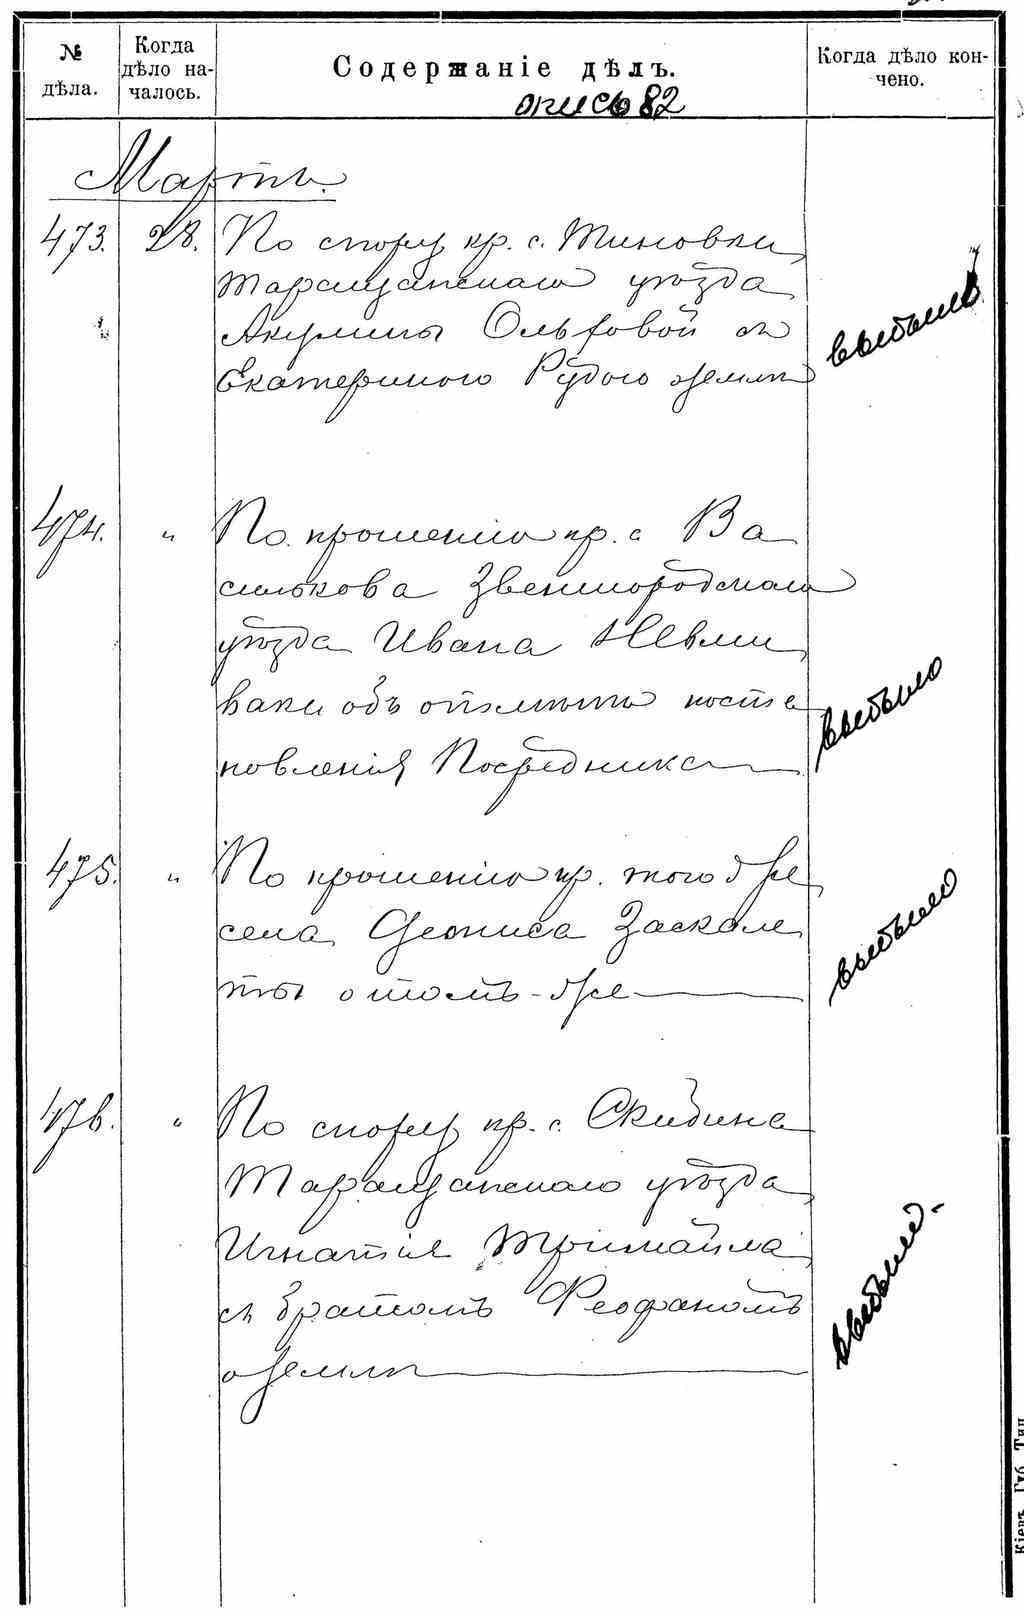 № дѣла.
Когда дѣло на-
чалось.
Содержаніе дѣлъ.
Когда дѣло кон-
чено.
опись 82
Мартъ.
473. 28. По спору кр. с. Тиновки
Таращанскаго уѣзда
Акулины Ольховой съ
Екатериного Рудого о землѣ
выбыло
474. " По прошенію кр. с. Ва
силькова Звенигородскаго
уѣзда Ивана
ваки объ отмѣнѣ поста
новленія Посредника
выбыло
475. " По прошенію кр. того же
села, Дениса Заскале
ты о томъ-же
выбыло
476. " По спору кр. с. Скибина
Таращанскаго уѣзда
Игнатія Тримайла
съ братомъ Феофаномъ
о землѣ
выбыло.
Кіевъ. Губ. Тип.